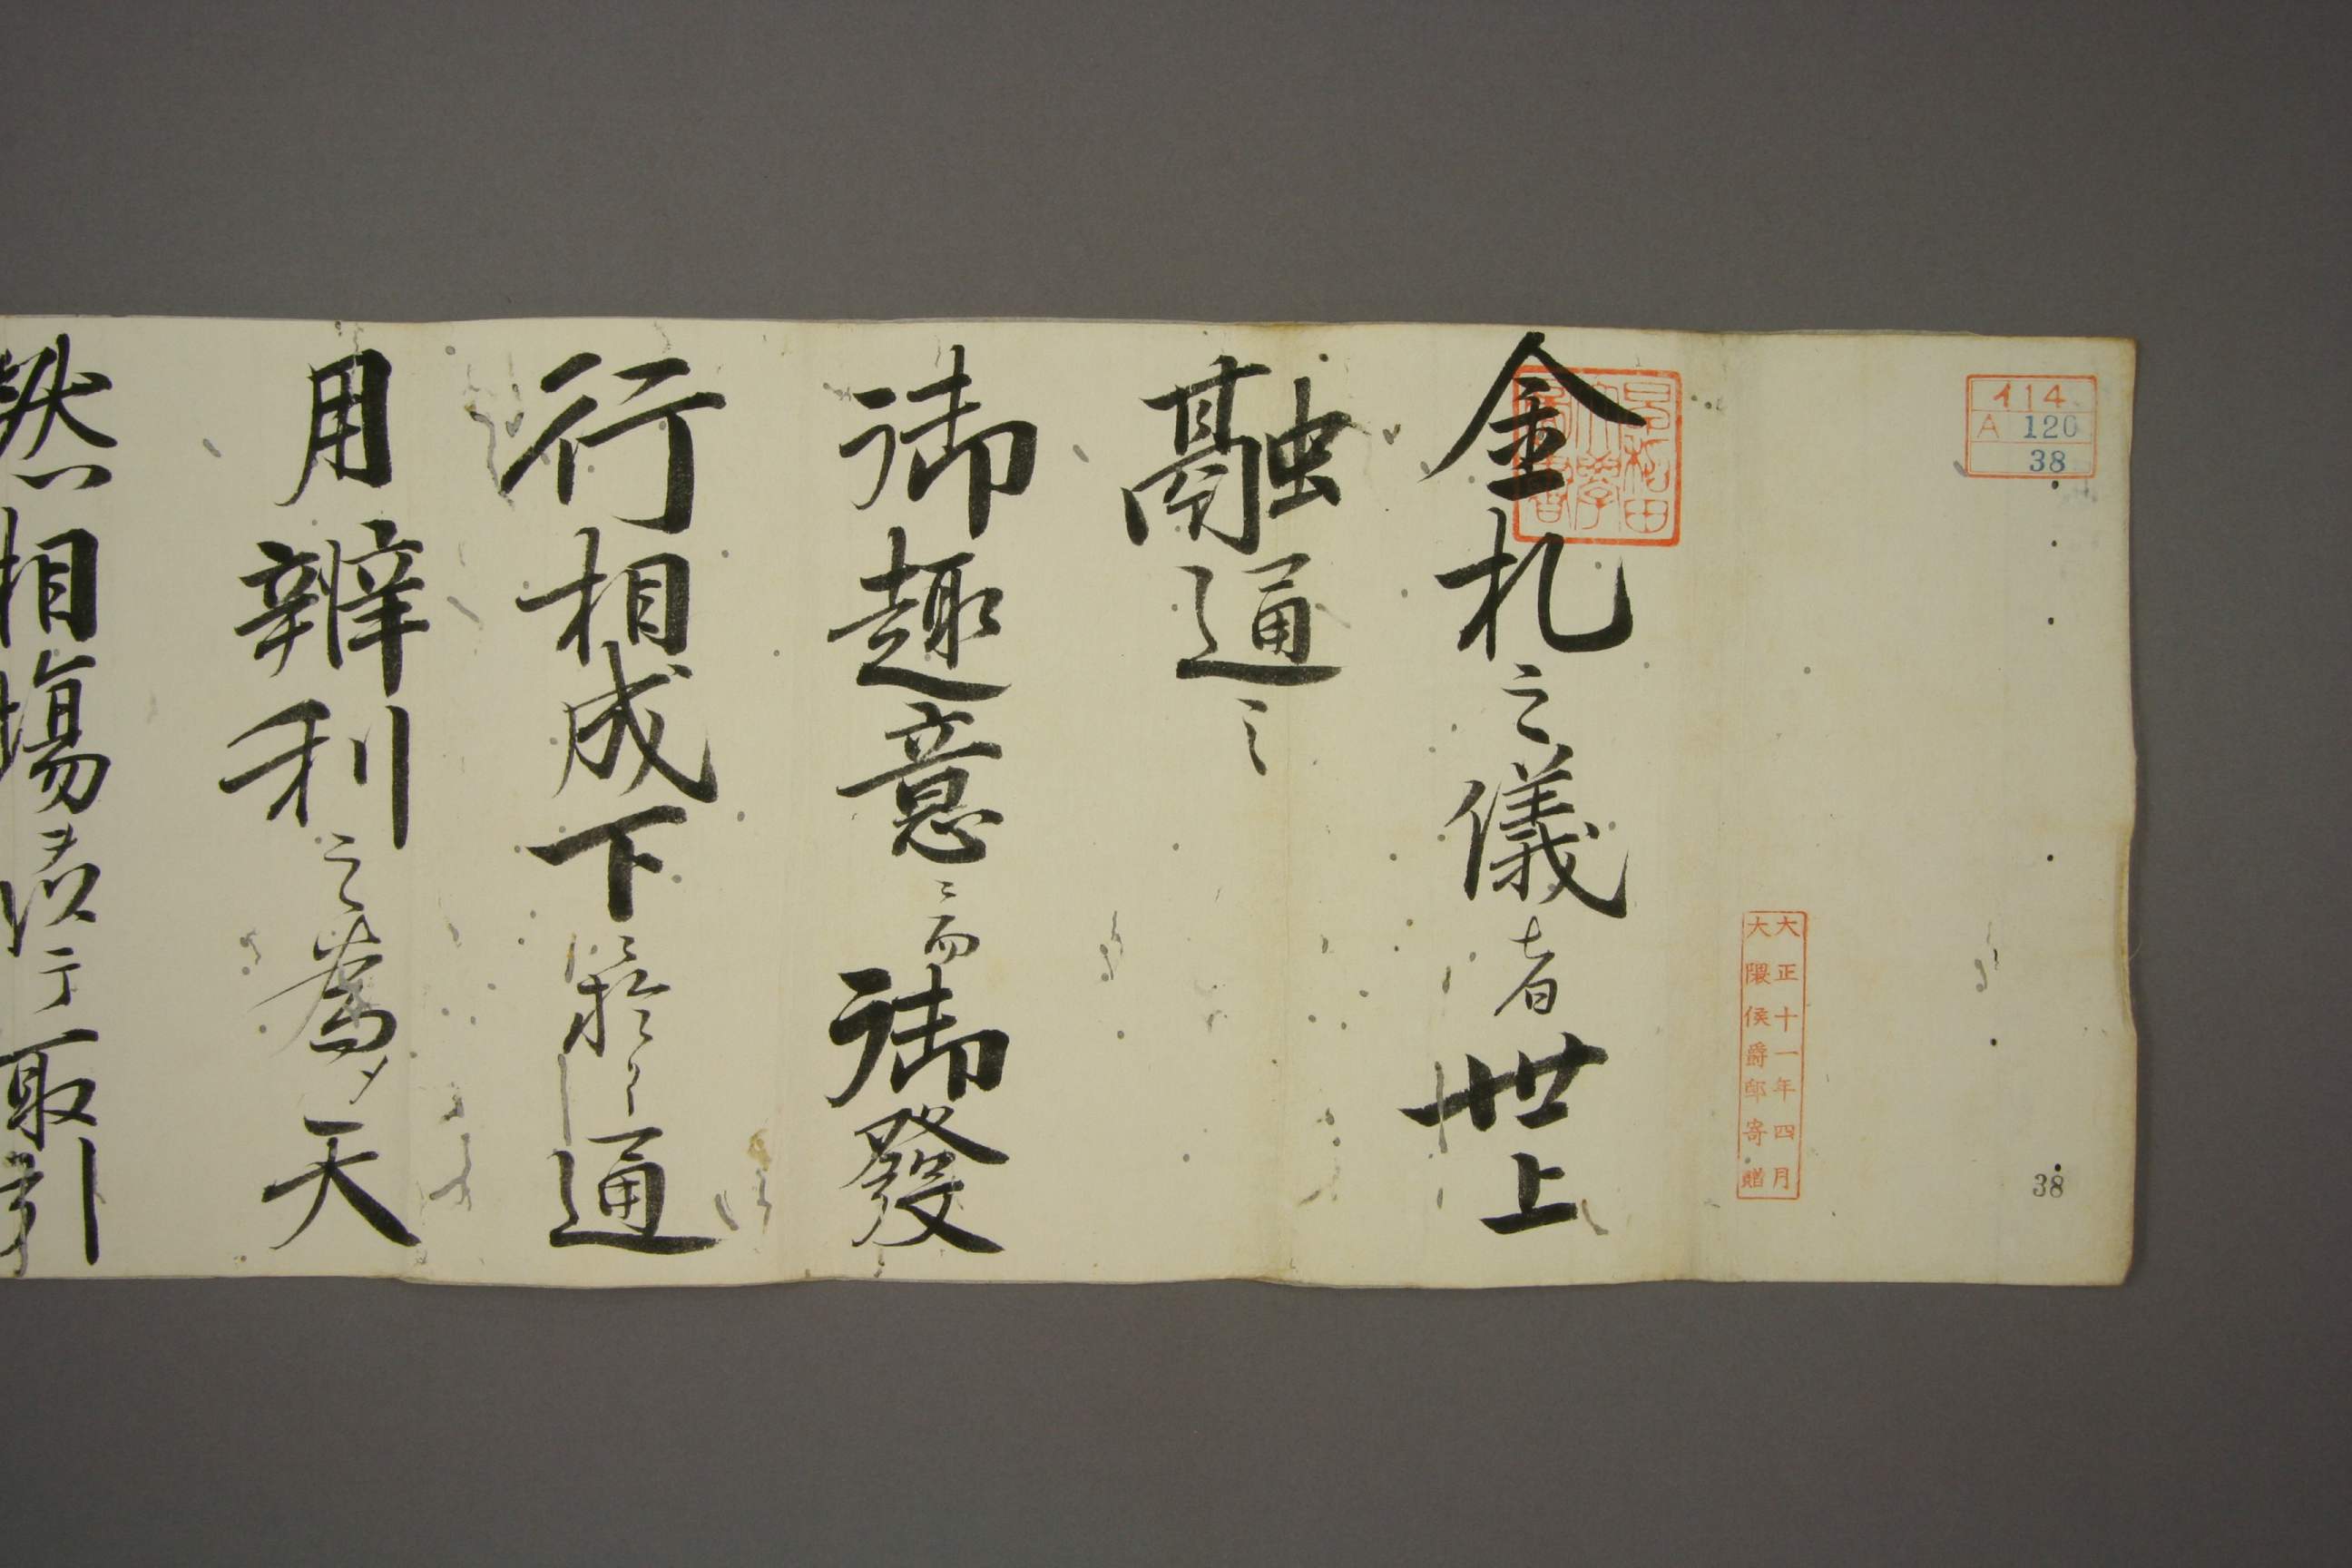 イ14
A 120
38
38
大正十一年四月
大隈侯爵邸寄贈
早稲田大學圖書
金札之儀者世上
融通之
御趣意ニ而御發
行相成下ニ於テ通
用辨利之為メ天
然相場ヲ以テ取引